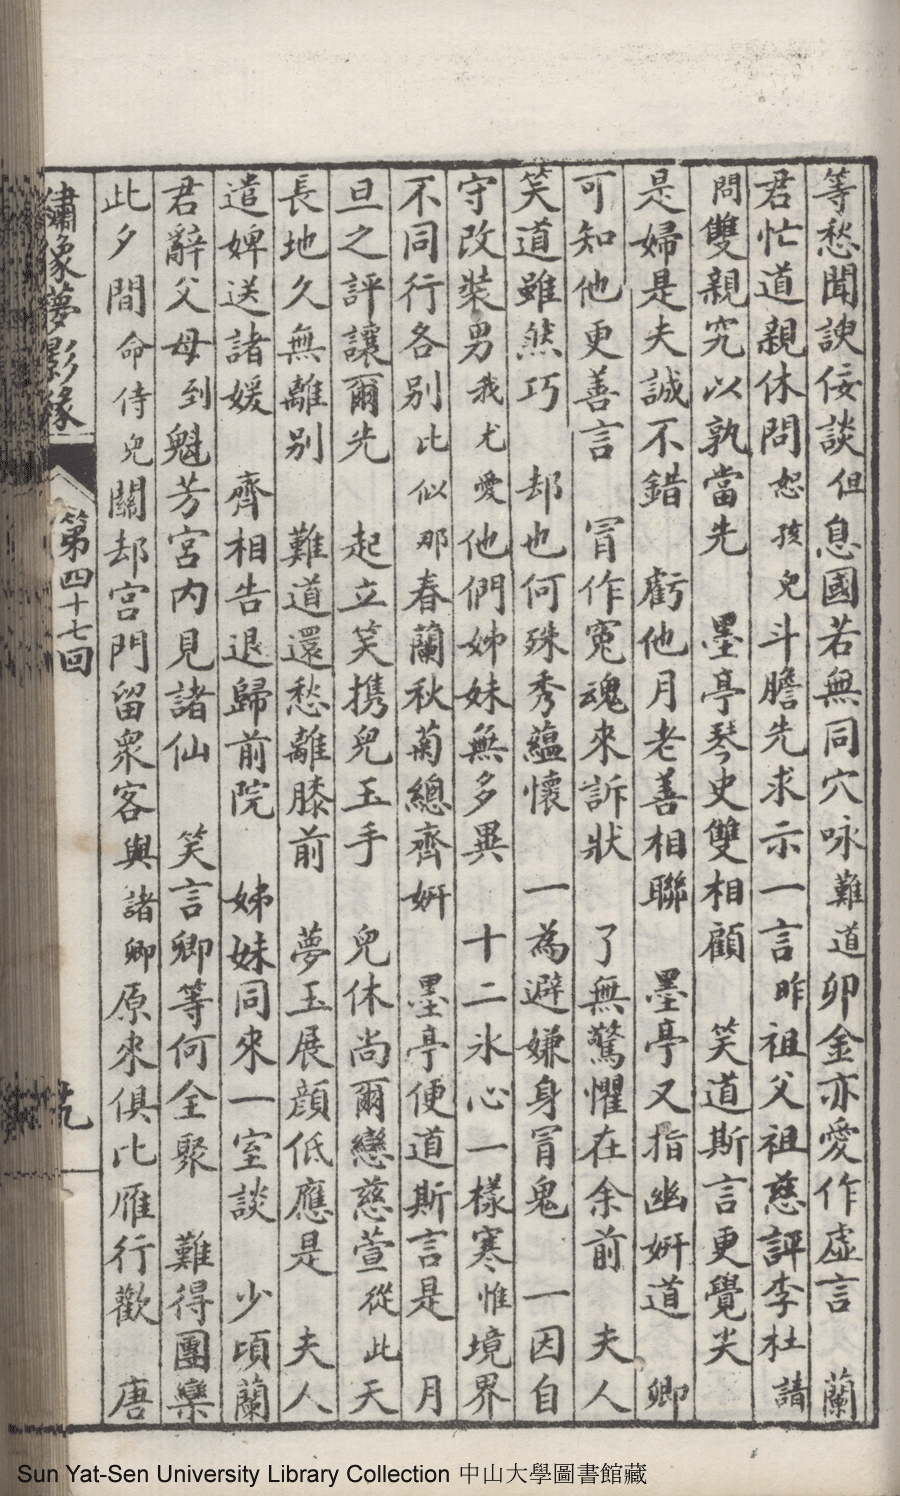 等愁聞諛佞談但息國若無同穴咏難道卯金亦愛作虛言　蘭
君忙道親休問恕孩兒斗膽先求示一言昨祖父祖慈評李杜請
問雙親究以孰當先　墨亭琴史雙相顧　笑道斯言更覺尖
是婦是夫誠不錯　虧他月老善相聯　墨亭又指幽妍道　卿
可知他更善言　冐作冤魂來訴狀　了無驚懼在余前　夫人
笑道雖然巧　却也何殊秀蘊懷　一為避嫌身冐鬼　一因自
守改裝男我尤愛他們姊妹無多異　十二氷心一樣寒惟境界
不同行各別比似那春蘭秋菊總齊妍　墨亭便道斯言是　月
旦之評讓爾先　起立笑携兒玉手　兒休尚爾戀慈萱從此天
長地久無離別　難道還愁離膝前　夢玉展顏低應是　夫人
遣婢送諸媛　齊相告退歸前院　姊妹同來一室談　少頃蘭
君辭父母到魁芳宮內見諸仙　笑言卿等何全聚　難得團欒
此夕間命侍兒關却宮門留衆客與諸卿原來俱比雁行歡　唐
繡像夢影緣
第四十七回
Sun Yat-Sen University Library Collection 中山大學圖書館藏